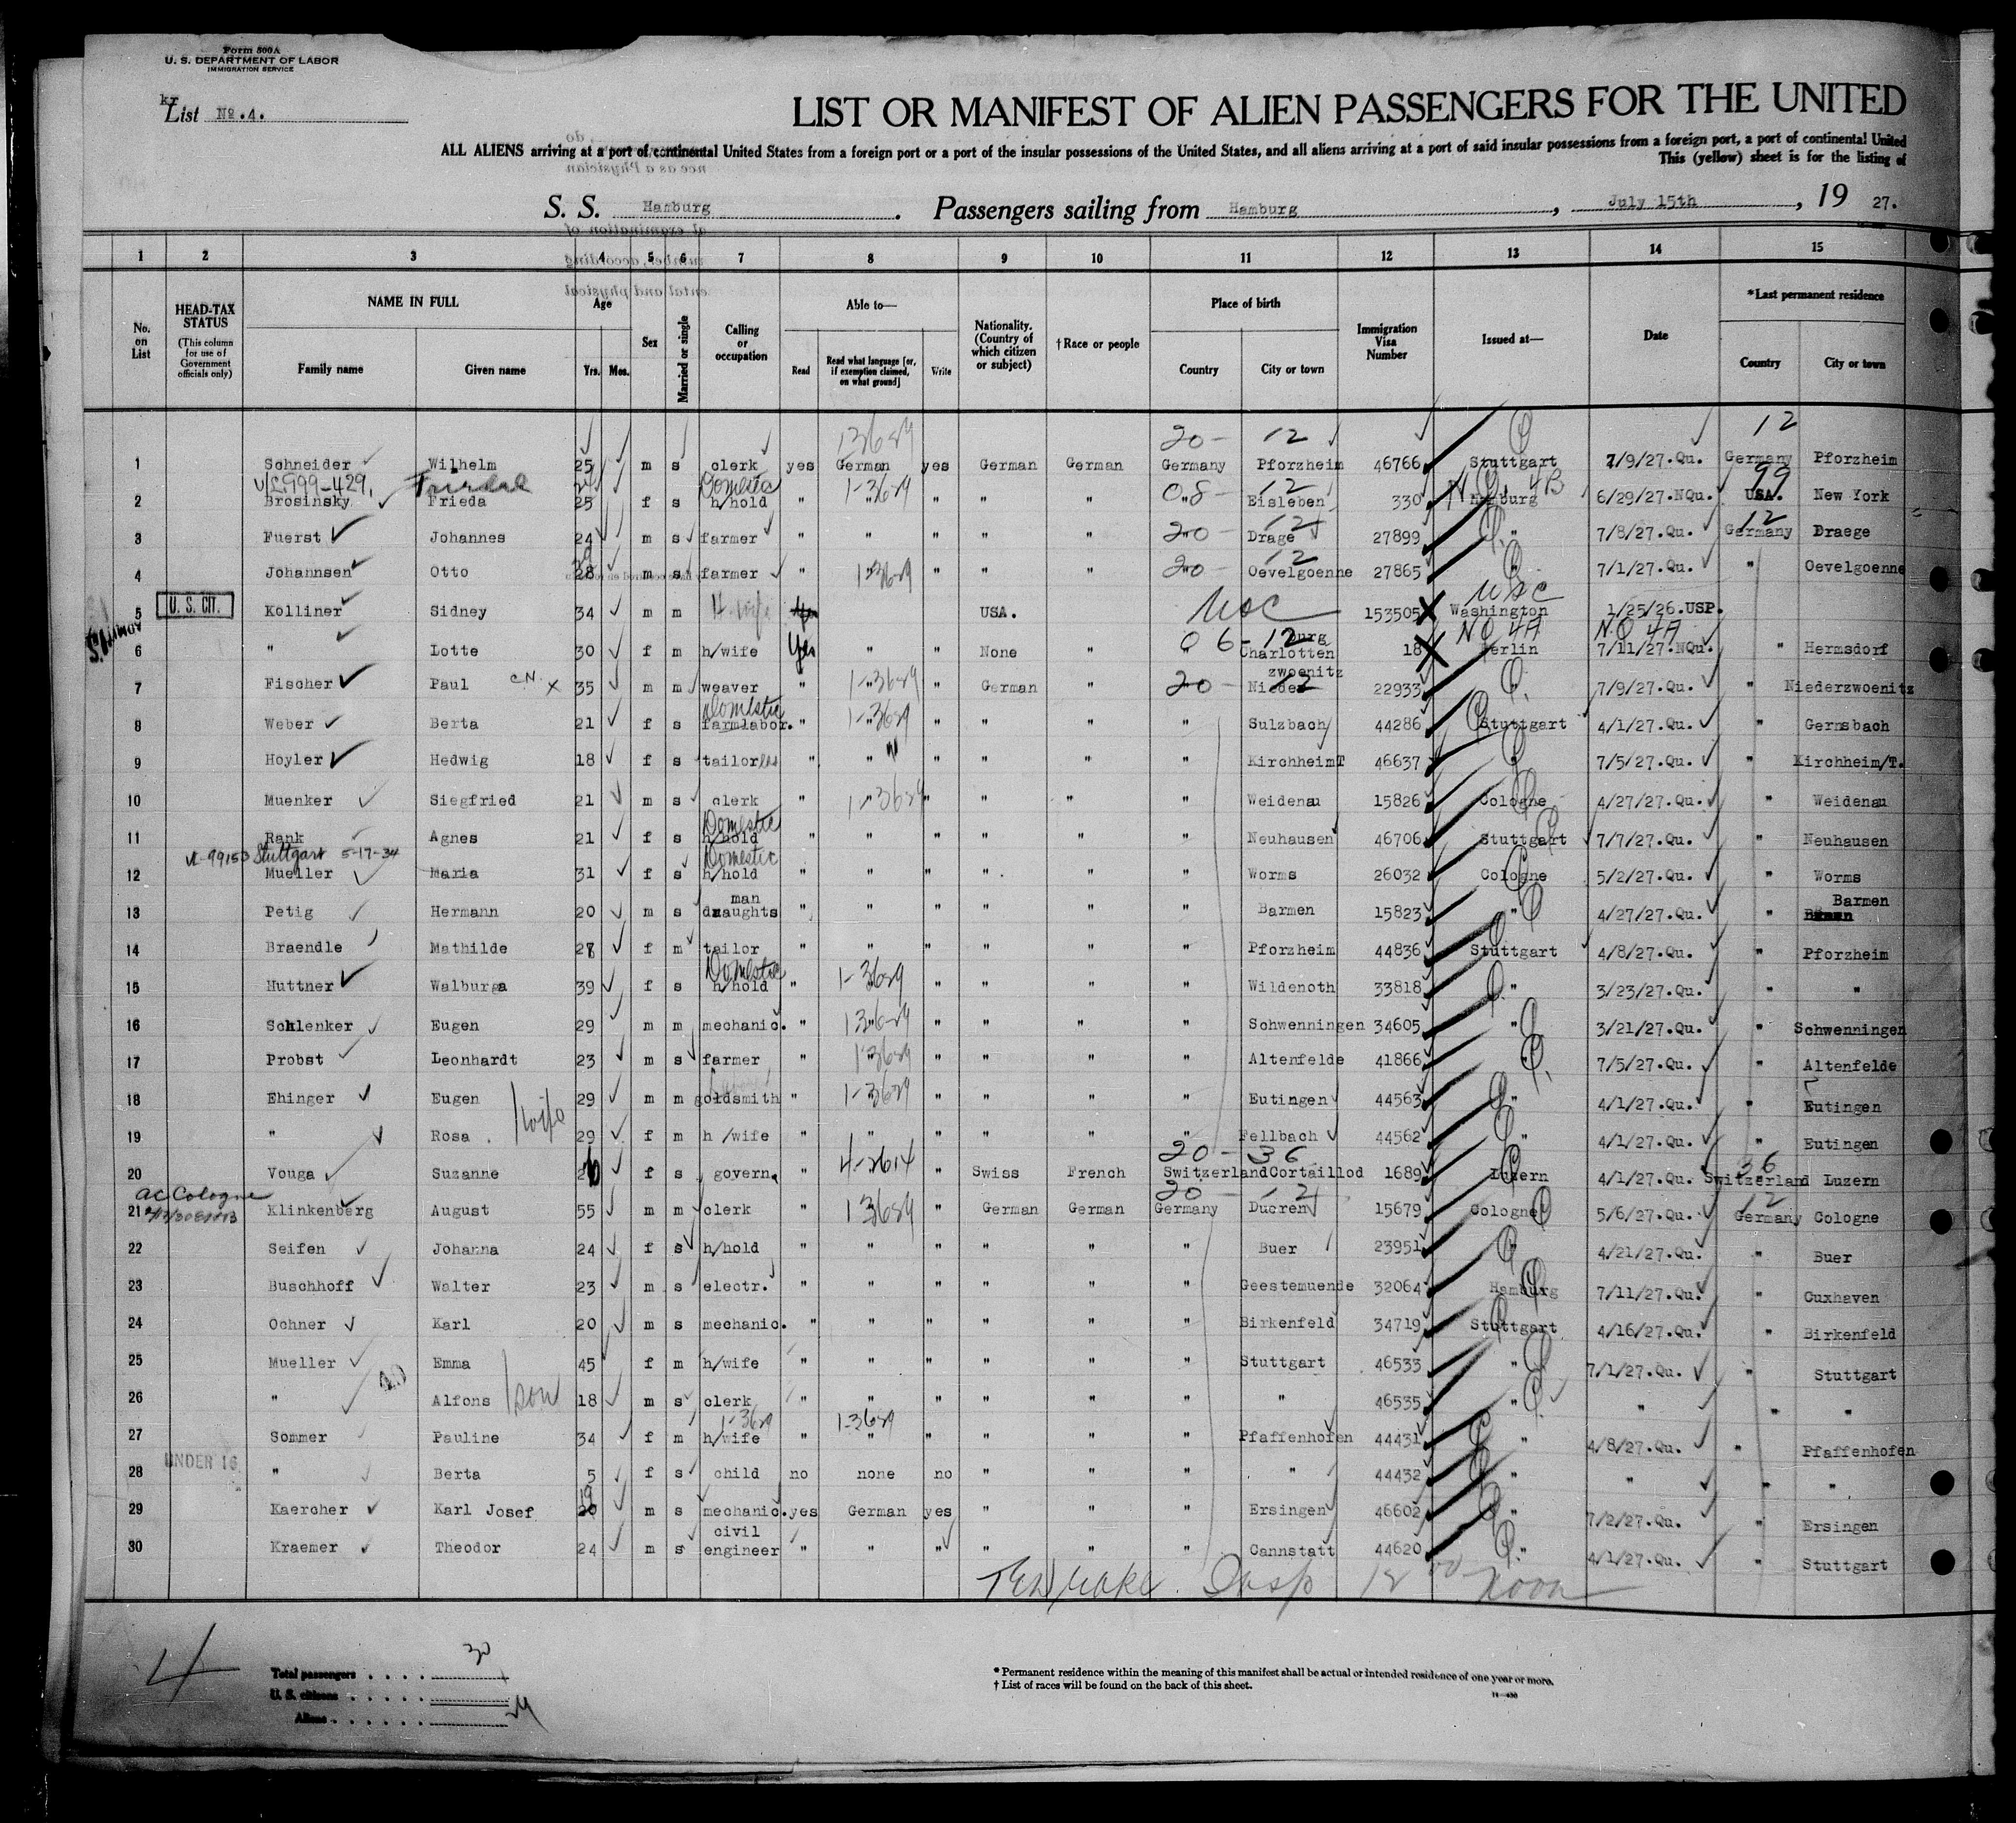 Form 500A
U. S. DEPARTMENT OF LABOR
IMMIGRATION SERVICE
kr
List No.4.
LIST OR MANIFEST OF ALIEN PASSENGERS FOR THE UNITED
ALL ALIENS arriving at a port of continental United States from a foreign port or a port of the insular possessions of the United States, and all aliens arriving at a port of said insular possessions from a foreign port, a port of continental United
This (yellow) sheet is for the listing of
S. S. Hamburg. Passengers sailing from Hamburg, July 15th, 19 27.
1 2 3 4 5 6 7 8 9 10 11 12 13 14 15
No. on List
HEAD-TAX STATUS (This column for use of Government officials only)
NAME IN FULL Family name Given name
Age Yrs. Mos.
Sex
Married or single
Calling or occupation
Able to— Read Read what language [or, if exemption claimed, on what ground] Write
Nationality. (Country of which citizen or subject)
†Race or people
Place of birth Country City or town
Immigration Visa Number
Issued at—
Date
*Last permanent residence Country City or town
13689 20- 12 12
1 Schneider Wilhelm 25 m s clerk yes German yes German German Germany Pforzheim 46766 Stuttgart 7/9/27.Qu. Germany Pforzheim
Domestic 1-3689 08- 12 N.Q. 4B 99
2 Brosinsky Frieda 25 f s h/hold " " " " " " Eisleben 330 Hamburg 6/29/27.NQu. USA. New York
20- 12 12
3 Fuerst Johannes 24 m s farmer " " " " " " Drage 27899 " 7/8/27.Qu. Germany Draege
13689 20- 12
4 Johannsen Otto 28 m s farmer " " " " " " Oevelgoenne 27865 " 7/1/27.Qu. " Oevelgoenne
U. S. CIT. USC USC
5 Kolliner Sidney 34 m m H. wife USA. 153505 Washington 1/25/26.USP.
06- 12 burg NQ 4A N.Q 4A
6 " Lotte 30 f m h/wife Yes " " None " " Charlotten 18 Berlin 7/11/27.NQu. " Hermsdorf
C.N. x 1-3689 20- 12 zwoenitz
7 Fischer Paul 35 m m weaver " " " German " " Nieder 22933 " 7/9/27.Qu. " Niederzwoenitz
Domestic 1-3689
8 Weber Berta 21 f s farmlabor. " " " " " " Sulzbach 44286 Stuttgart 4/1/27.Qu. " Gernsbach
9 Hoyler Hedwig 18 f s tailoress " " " " " " KirchheimT 46637 " 7/5/27.Qu. " Kirchheim/T.
1-3689
10 Muenker Siegfried 21 m s clerk " " " " " " Weidenau 15826 Cologne 4/27/27.Qu. " Weidenau
Domestic
11 Rank Agnes 21 f s h/hold " " " " " " Neuhausen 46706 Stuttgart 7/7/27.Qu. " Neuhausen
Vl-99153 Stuttgart 5-17-34 Domestic
12 Mueller Maria 31 f s h/hold " " " " " " Worms 26032 Cologne 5/2/27.Qu. " Worms
man Barmen
13 Petig Hermann 20 m s draughts " " " " " " Barmen 15823 " 4/27/27.Qu. "
14 Braendle Mathilde 27 f m tailor " " " " " " Pforzheim 44836 Stuttgart 4/8/27.Qu. " Pforzheim
Domestic 1-3689
15 Huttner Walburga 39 f s h/hold " " " " " Wildenoth 33818 " 3/23/27.Qu. " "
13689
16 Schlenker Eugen 29 m m mechanic. " " " " " " Schwenningen 34605 " 3/21/27.Qu. " Schwenningen
13689
17 Probst Leonhardt 23 m s farmer " " " " " " Altenfelde 41866 " 7/5/27.Qu. " Altenfelde
1-3689
18 Ehinger Eugen 29 m m goldsmith " " " " " Eutingen 44563 " 4/1/27.Qu. " Eutingen
wife
19 " Rosa 29 f m h /wife " " " " " " Fellbach 44562 " 4/1/27.Qu. " Eutingen
4-3614 20- 36 36
20 Vouga Suzanne 26 f s govern. " " Swiss French Switzerland Cortaillod 1689 Luzern 4/1/27.Qu. Switzerland Luzern
ac Cologne 13689 20- 12 12
21 Klinkenberg August 55 m m clerk " " German German Germany Dueren 15679 Cologne 5/6/27.Qu. Germany Cologne
22 Seifen Johanna 24 f s h/hold " " " " " " Buer 23951 " 4/21/27.Qu. " Buer
23 Buschhoff Walter 23 m s electr. " " " " " " Geestemuende 32064 Hamburg 7/11/27.Qu. " Cuxhaven
24 Ochner Karl 20 m s mechanic. " " " " " " Birkenfeld 34719 Stuttgart 4/16/27.Qu. " Birkenfeld
25 Mueller Emma 45 f m h/wife " " " " " " Stuttgart 46533 " 7/1/27.Qu. " Stuttgart
son
26 " Alfons 18 m s clerk " " " " " " " 46535 " " " "
1-3689 1-3689
27 Sommer Pauline 34 f m h/wife " " " " " " Pfaffenhofen 44431 " 4/8/27.Qu. " Pfaffenhofen
UNDER 16
28 " Berta 5 f s child no none no " " " " 44432 " " " "
19
29 Kaercher Karl Josef 20 m s mechanic. yes German yes " " " Ersingen 46602 " 7/2/27.Qu. " Ersingen
civil
30 Kraemer Theodor 24 m s engineer " " " " " " Cannstatt 44620 " 4/1/27.Qu. " Stuttgart
Insp 12 00 noon
4
Total passengers . . . . 30
U. S. citizens . . . . . 1
Aliens . . . . . . 29
* Permanent residence within the meaning of this manifest shall be actual or intended residence of one year or more.
† List of races will be found on the back of this sheet.